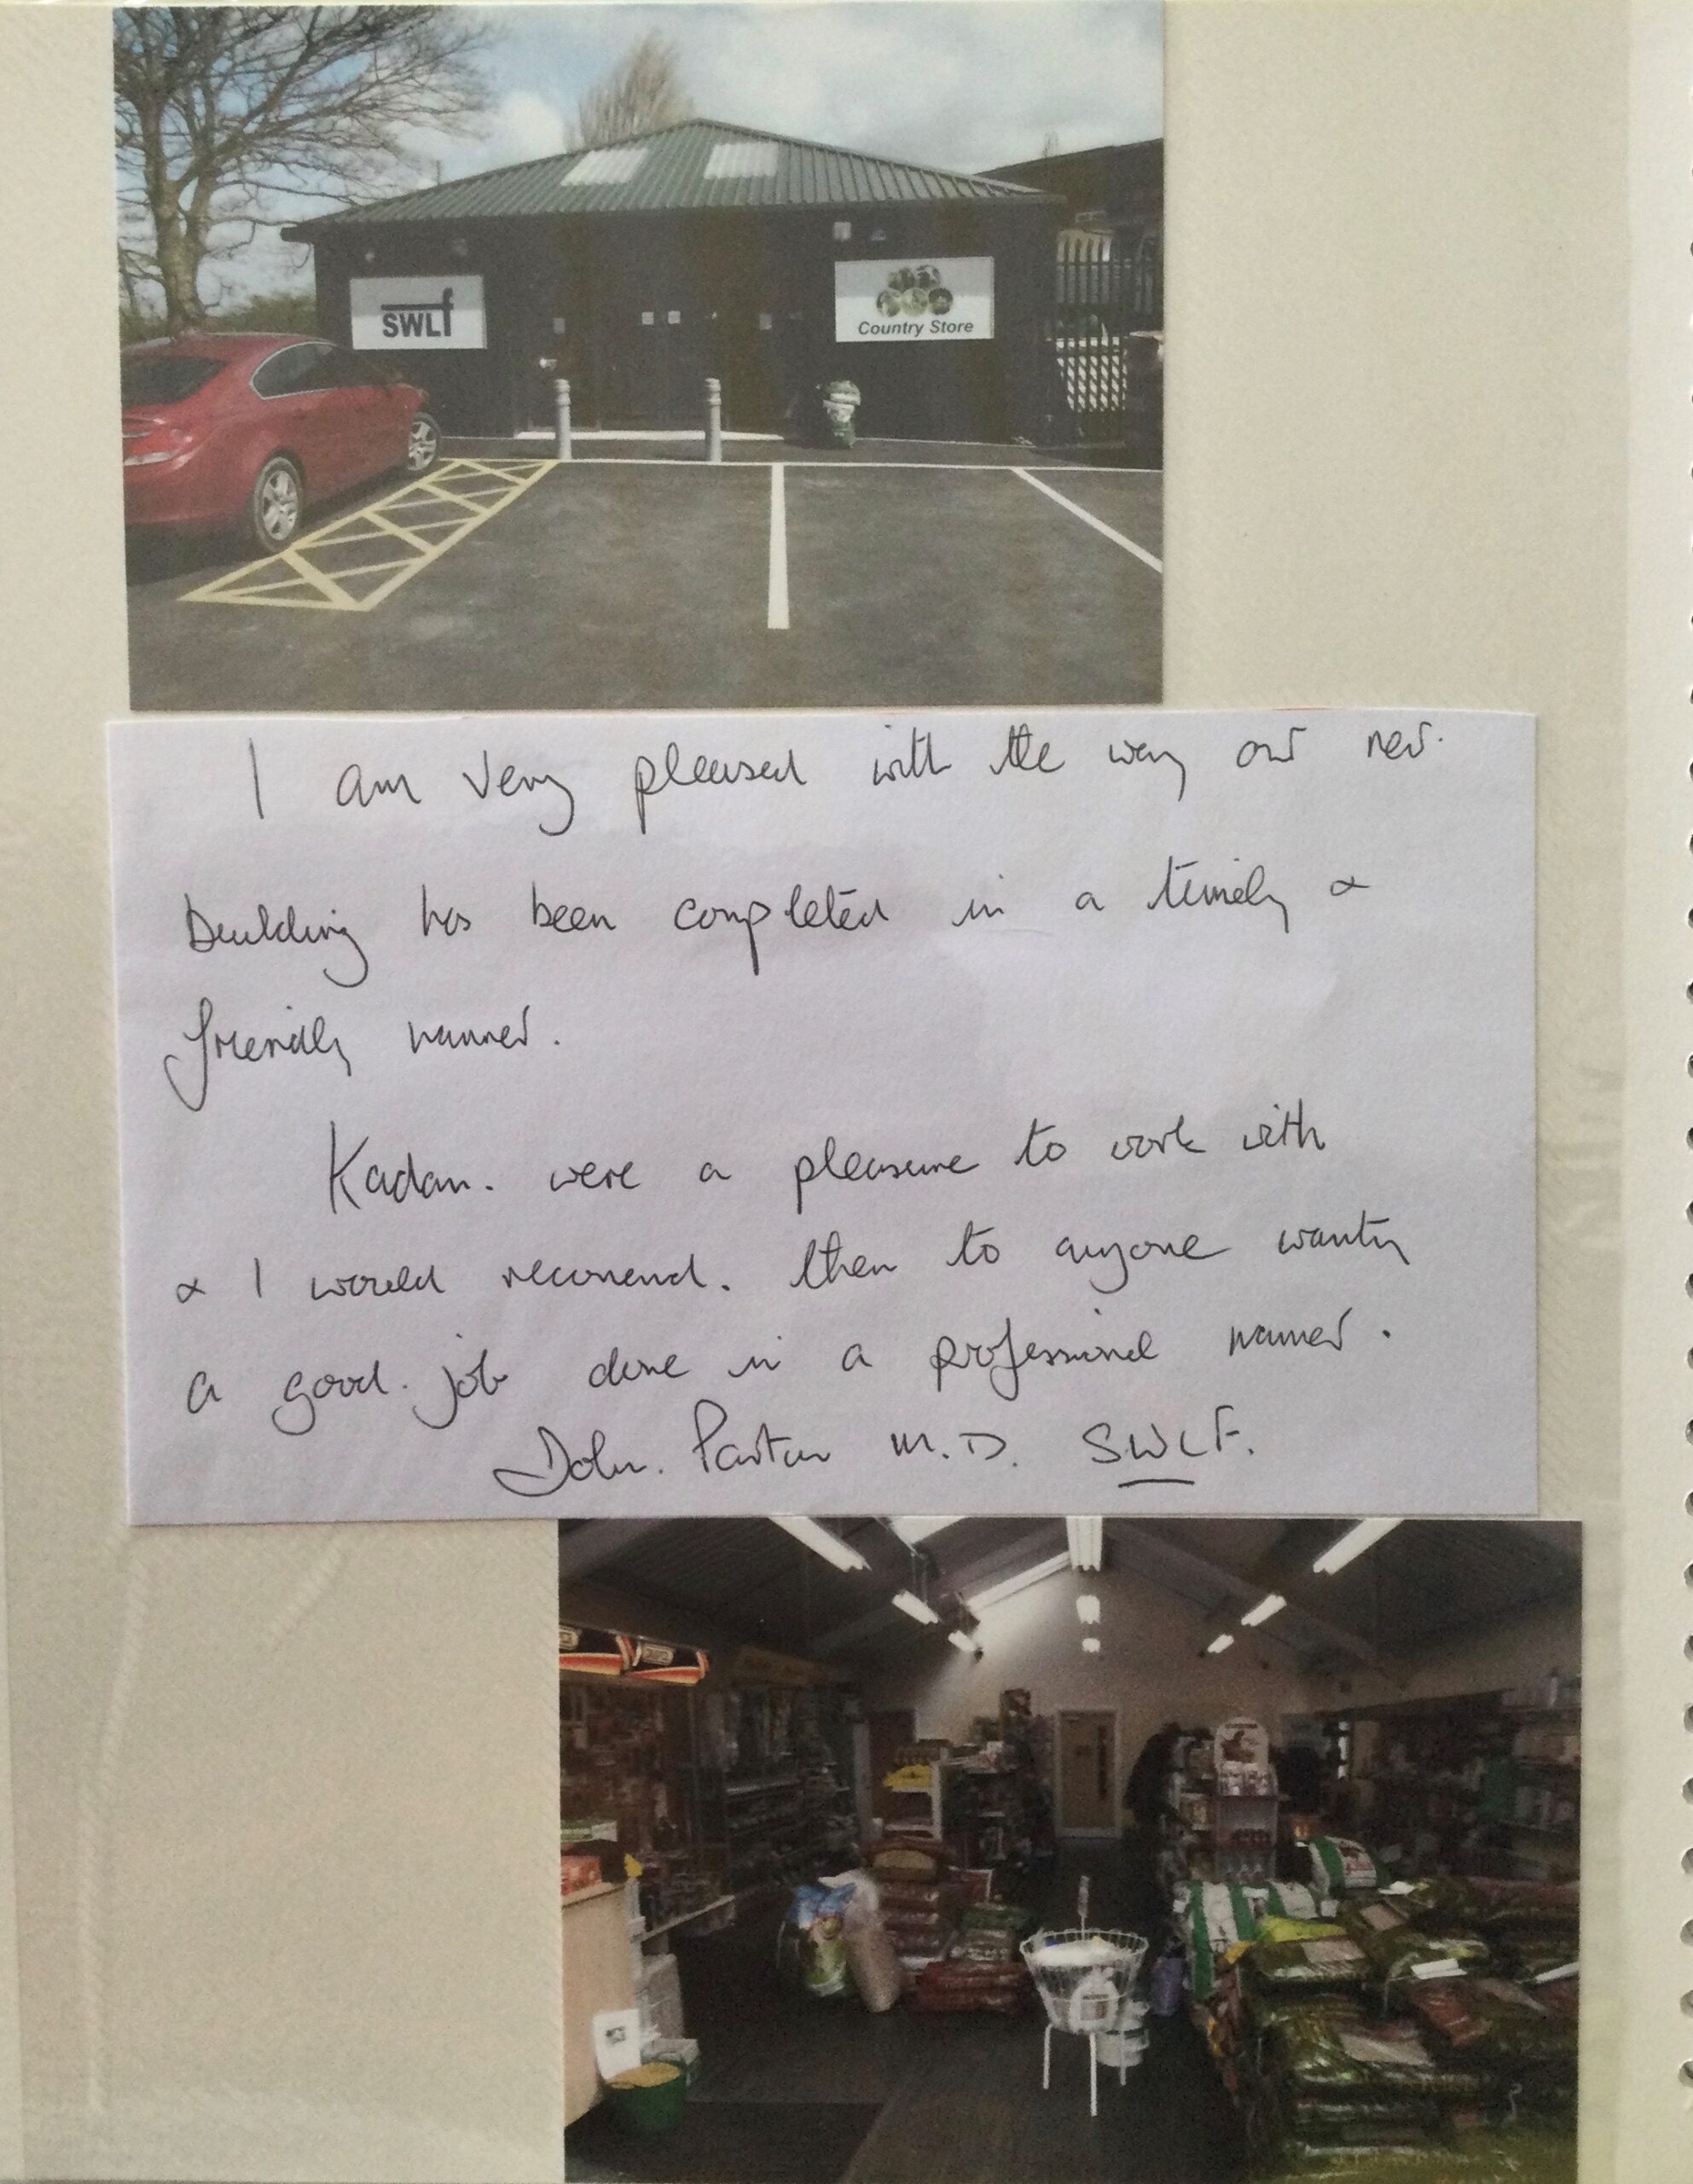 SWLf
Country Store
I am very pleased with the way our new
building has been completed in a timely &
friendly manner.
Kadan. were a pleasure to work with
& I would recomend. them to anyone wanting
a good job done in a professional manner.
John. M.D. SWLF.